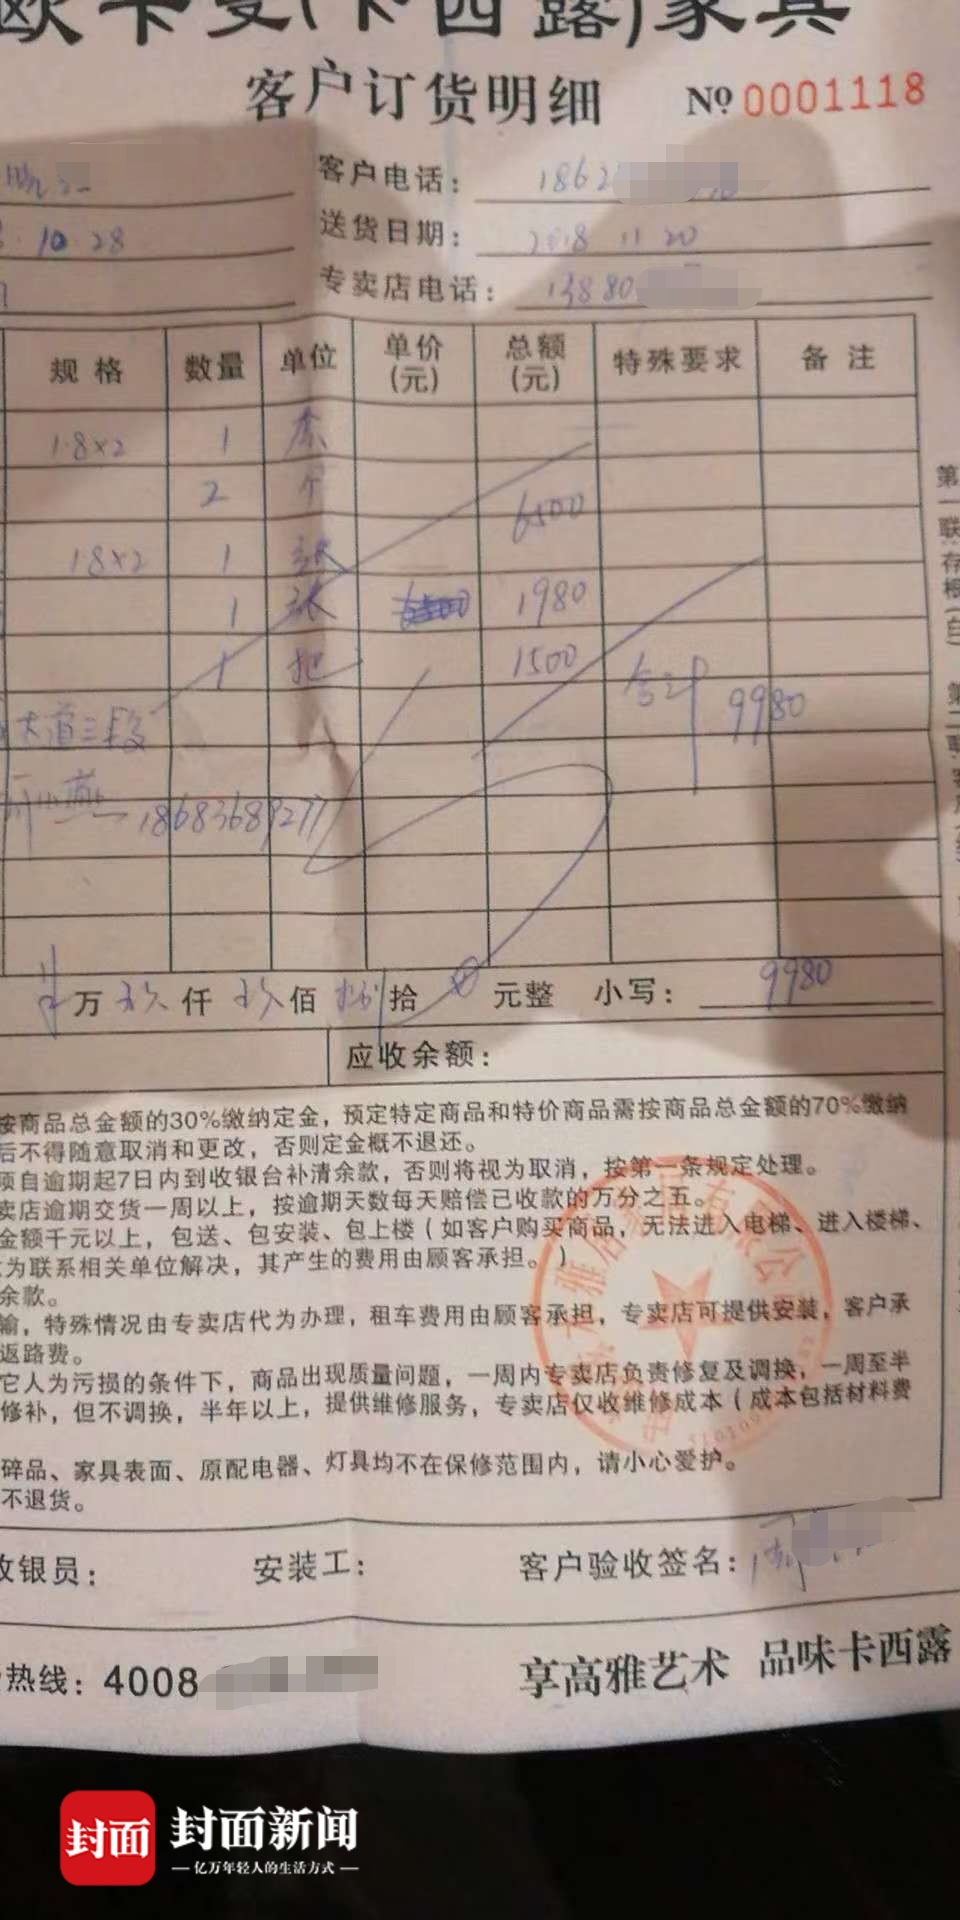 欧卡曼(卡西露)家具
客户订货明细 № 0001118
客户电话： 1862
10.28 送货日期： 2018 11 20
专卖店电话： 13880
规格 数量 单位 单价(元) 总额(元) 特殊要求 备注
1.8×2 1 套
2 个 6500
1.8×2 1 张
1 张 1980
1 把 1500
合计 9980
大道三段
18683689277
万 玖 仟 玖 佰 捌 拾 元整 小写： 9980
应收余额：
按商品总金额的30%缴纳定金，预定特定商品和特价商品需按商品总金额的70%缴纳
后不得随意取消和更改，否则定金概不退还。
须自逾期起7日内到收银台补清余款，否则将视为取消，按第一条规定处理。
卖店逾期交货一周以上，按逾期天数每天赔偿已收款的万分之五。
金额千元以上，包送、包安装、包上楼（如客户购买商品，无法进入电梯、进入楼梯、
为联系相关单位解决，其产生的费用由顾客承担。）
余款。
输，特殊情况由专卖店代为办理，租车费用由顾客承担，专卖店可提供安装，客户承
返路费。
它人为污损的条件下，商品出现质量问题，一周内专卖店负责修复及调换，一周至半
修补，但不调换，半年以上，提供维修服务，专卖店仅收维修成本（成本包括材料费
碎品、家具表面、原配电器、灯具均不在保修范围内，请小心爱护。
不退货。
收银员： 安装工： 客户验收签名：
热线：4008 享高雅艺术 品味卡西露
第一联：存根（白）
封面 封面新闻
亿万年轻人的生活方式